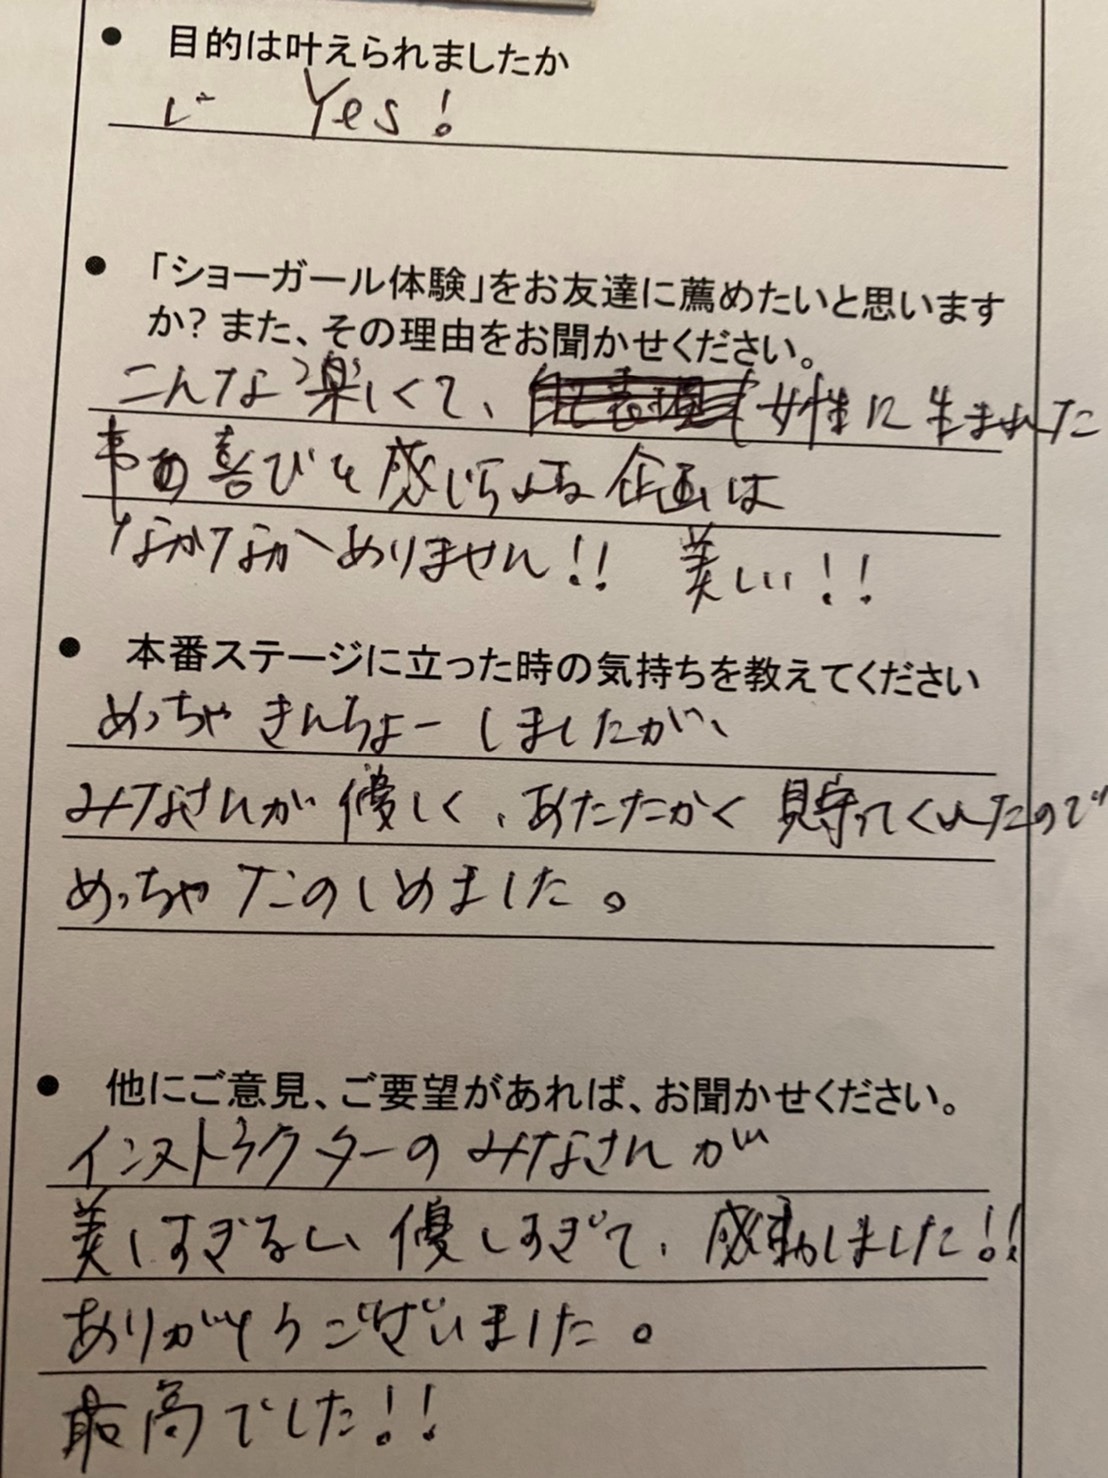 ● 目的は叶えられましたか
Yes!
● 「ショーガール体験」をお友達に薦めたいと思います
か? また、その理由をお聞かせください。
こんな楽しくて、女性に生まれた
事の喜びを感じられる企画は
なかなかありません!! 美しい!!
● 本番ステージに立った時の気持ちを教えてください
めっちゃきんちょーしましたが、
みなさんが優しく、あたたかく見守ってくれたので
めっちゃたのしめました。
● 他にご意見、ご要望があれば、お聞かせください。
インストラクターのみなさんが
美しすぎるし、優しすぎて、感動しました!!
ありがとうございました。
最高でした!!